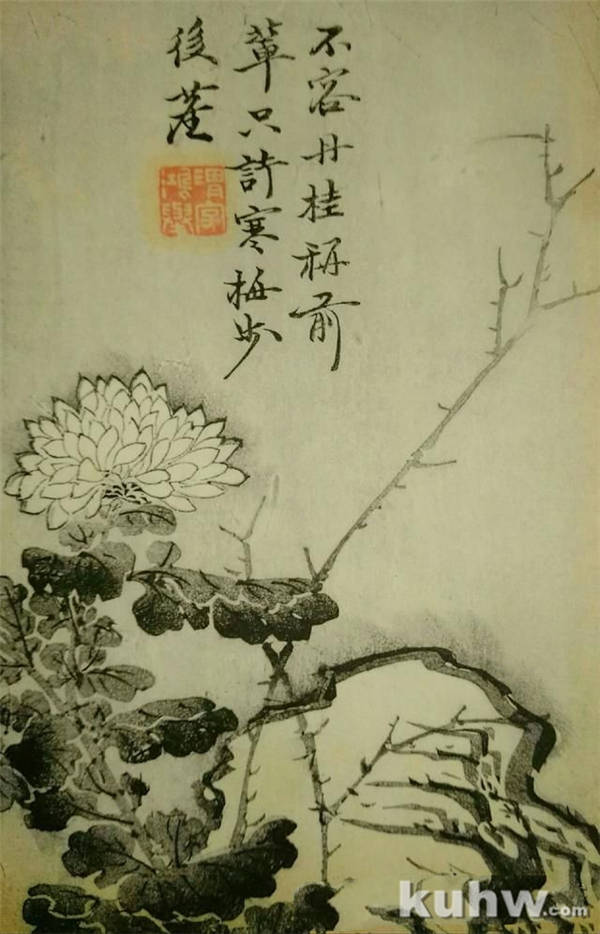 不容丹桂称前
輩只許寒梅步
後塵
kuhw.com